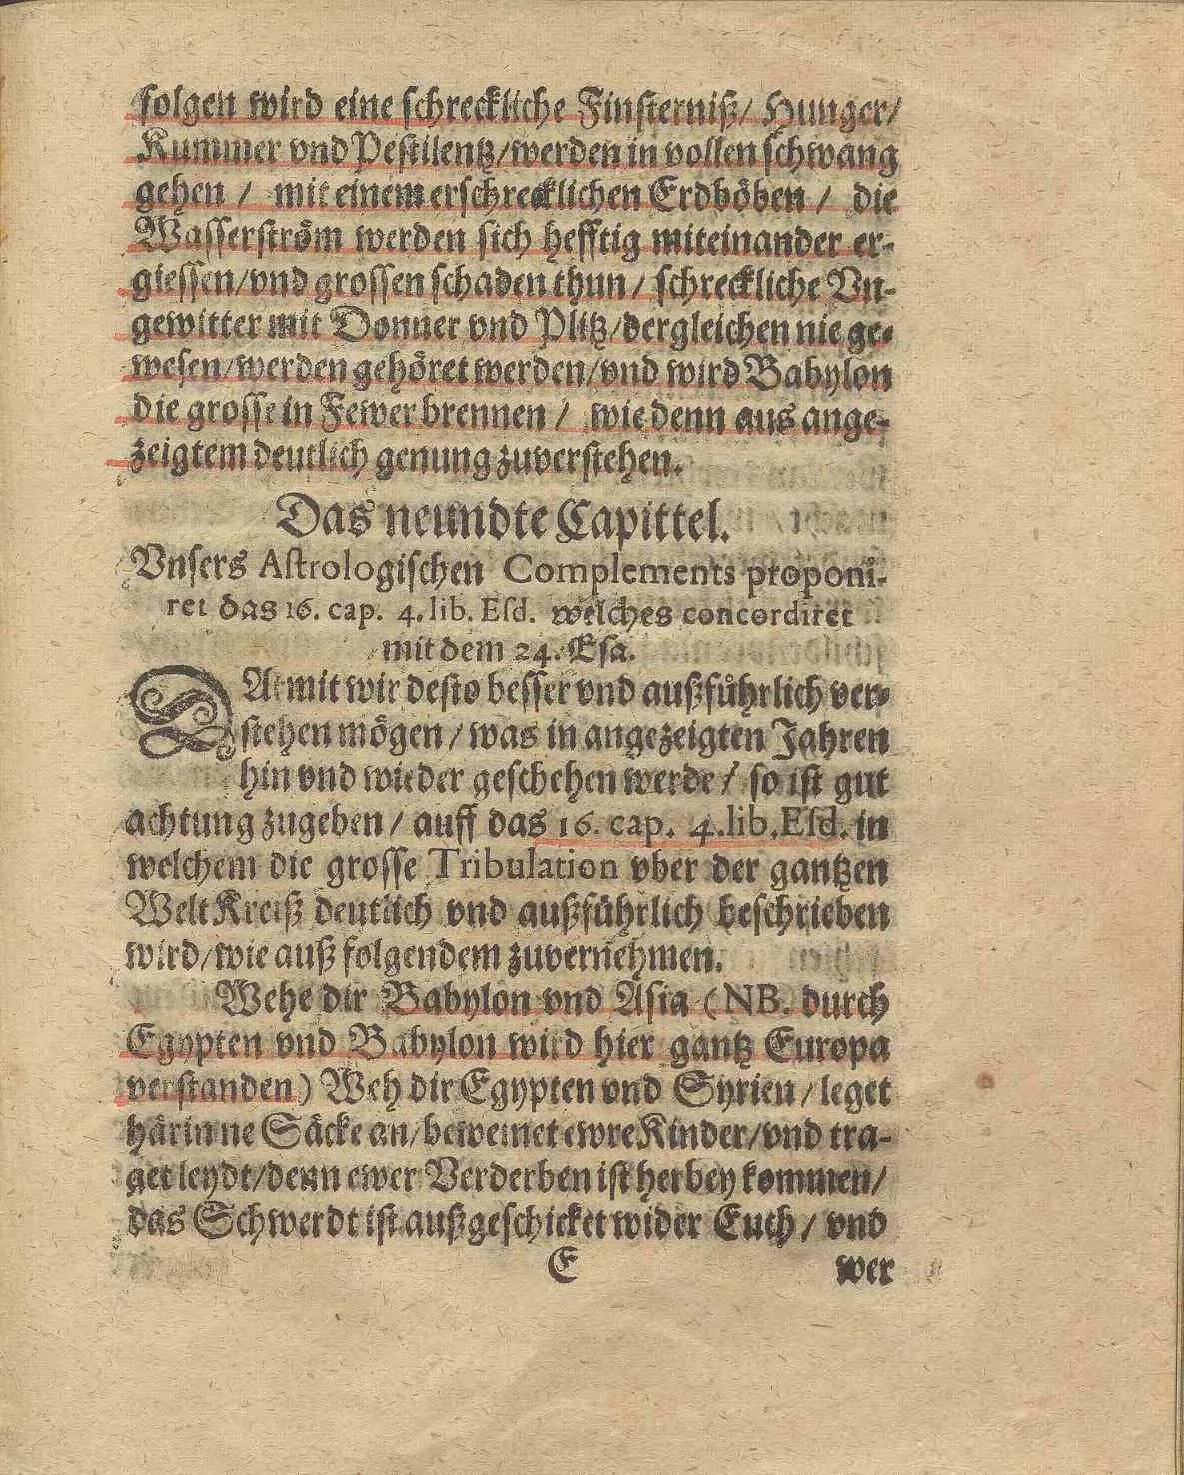 folgen wird eine schreckliche Finsterniß/ Hunger/
Kummer vnd Pestilentz/werden in vollen schwang
gehen / mit einem erschrecklichen Erdböben / die
Wasserström werden sich hefftig miteinander er-
giessen/vnd grossen schaden thun/ schreckliche Vn-
gewitter mit Donner vnd Plitz/dergleichen nie ge-
wesen/werden gehöret werden/vnd wird Babylon
die grosse in Fewer brennen / wie denn aus ange-
zeigtem deutlich genung zuverstehen.
Das neundte Capittel.
Vnsers Astrologischen Complements proponi-
ret das 16. cap. 4. lib. Esd. welches concordiret
mit dem 24. Esa.
DAmit wir desto besser vnd außführlich ver-
stehen mögen / was in angezeigten Jahren
hin vnd wieder geschehen werde / so ist gut
achtung zugeben / auff das 16. cap. 4. lib. Esd. in
welchem die grosse Tribulation vber der gantzen
Welt Kreiß deutlich vnd außführlich beschrieben
wird/wie auß folgendem zuvernehmen.
Wehe dir Babylon vnd Asia (NB. durch
Egypten vnd Babylon wird hier gantz Europa
verstanden) Weh dir Egypten vnd Syrien / leget
härinne Säcke an/beweinet ewre Kinder/vnd tra-
get leydt/denn ewer Verderben ist herbey kommen/
das Schwerdt ist außgeschicket wider Euch / vnd
E wer